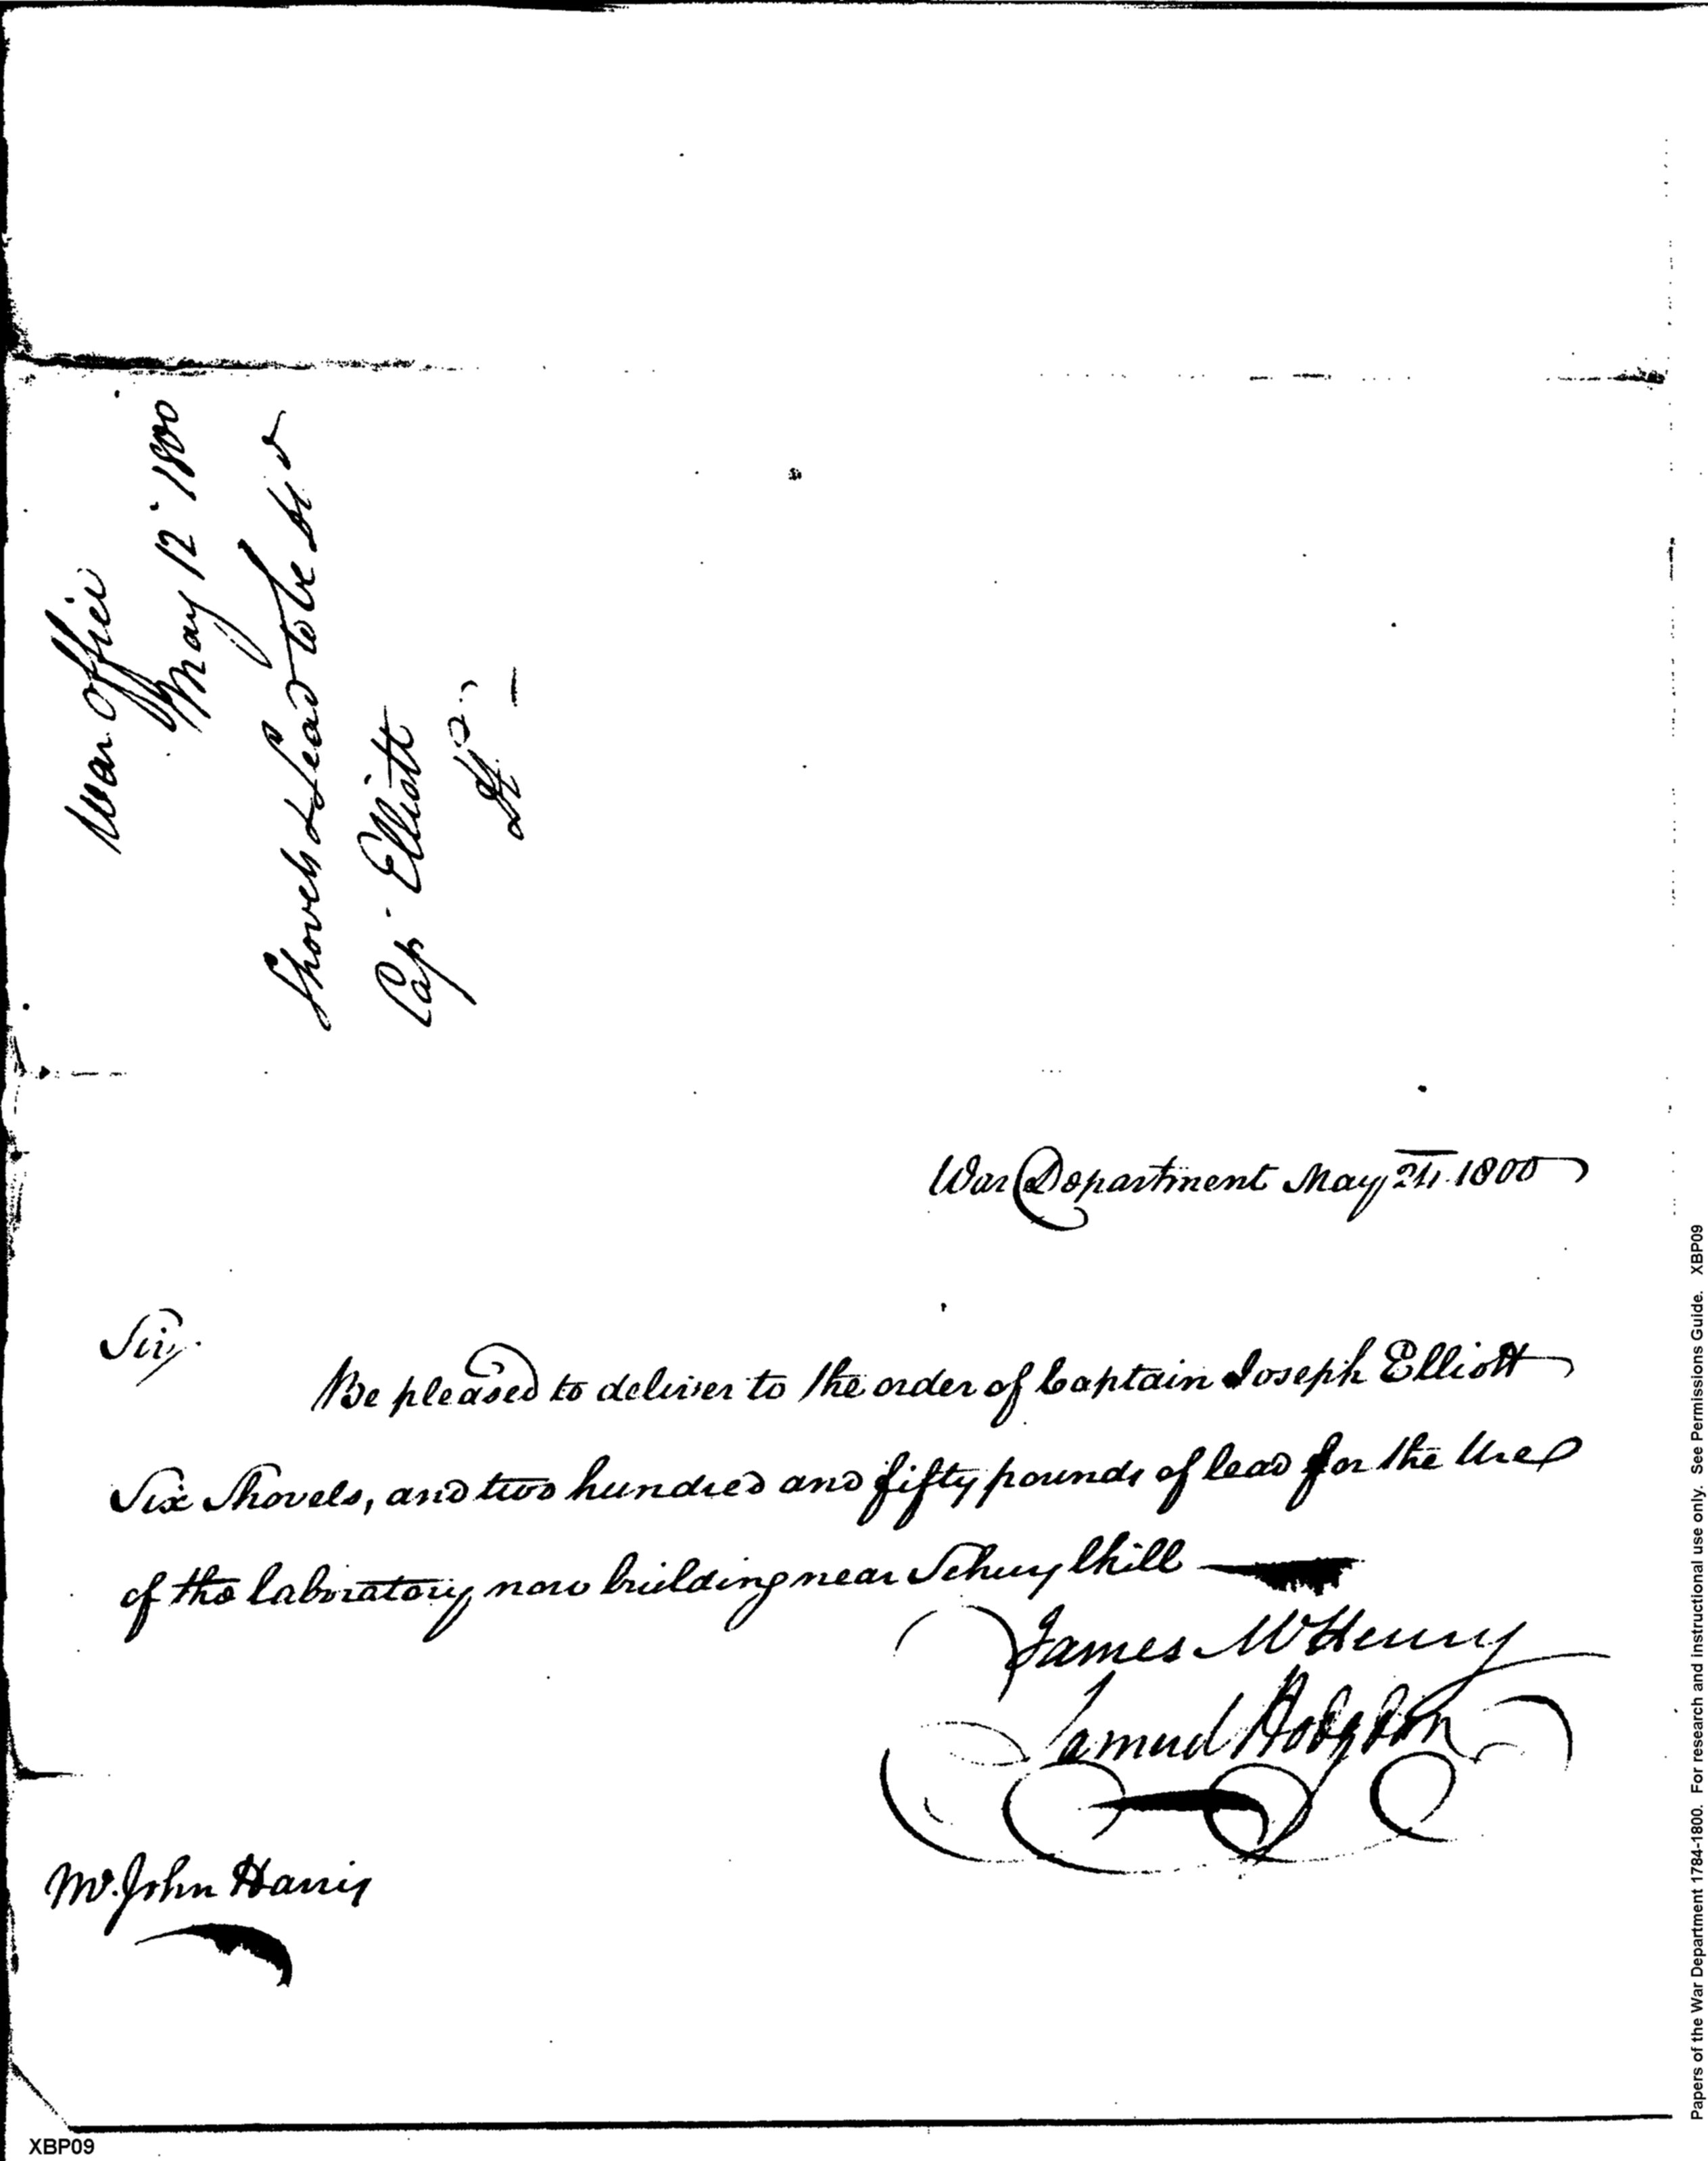 War Office
May 12 1800
Shovels & Lead to be
Cap. Elliott
War Department May 24. 1800
Sir,
Be pleased to deliver to the order of Captain Joseph Elliott
Six Shovels, and two hundred and fifty pounds of lead for the Use
of the laboratory now building near Schuylkill
James McHenry
Samuel Hodgdon
Mr. John Harris
XBP09
Papers of the War Department 1784-1800. For research and instructional use only. See Permissions Guide. XBP09